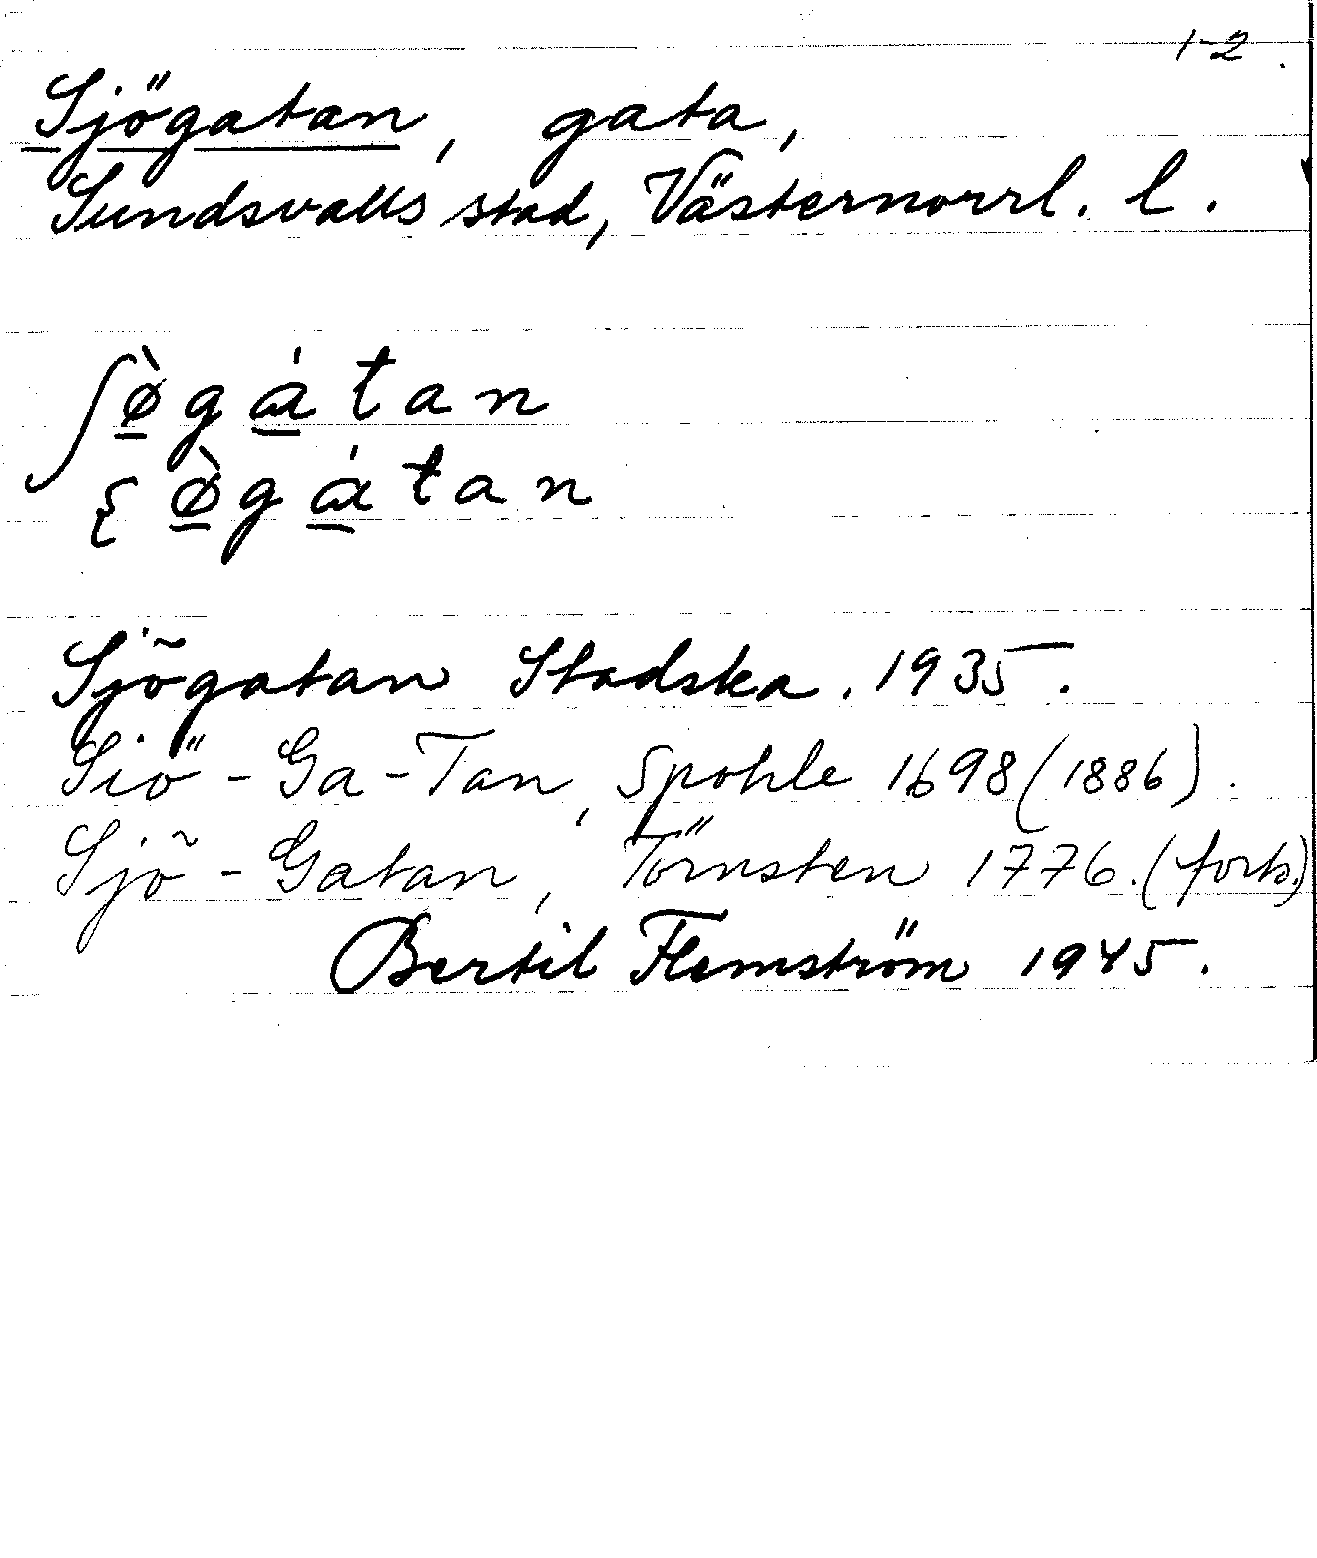 1-2.
Sjögatan, gata,
Sundsvalls stad, Västernorrl. l.
ʃø̀gɑ́tan
ξø̀gɑ́tan
Sjögatan Stadska. 1935.
Siö-Ga-Tan, Spohle 1698 (1886).
Sjö-Gatan, Törnsten 1776. (forts.)
Bertil Flemström 1945.